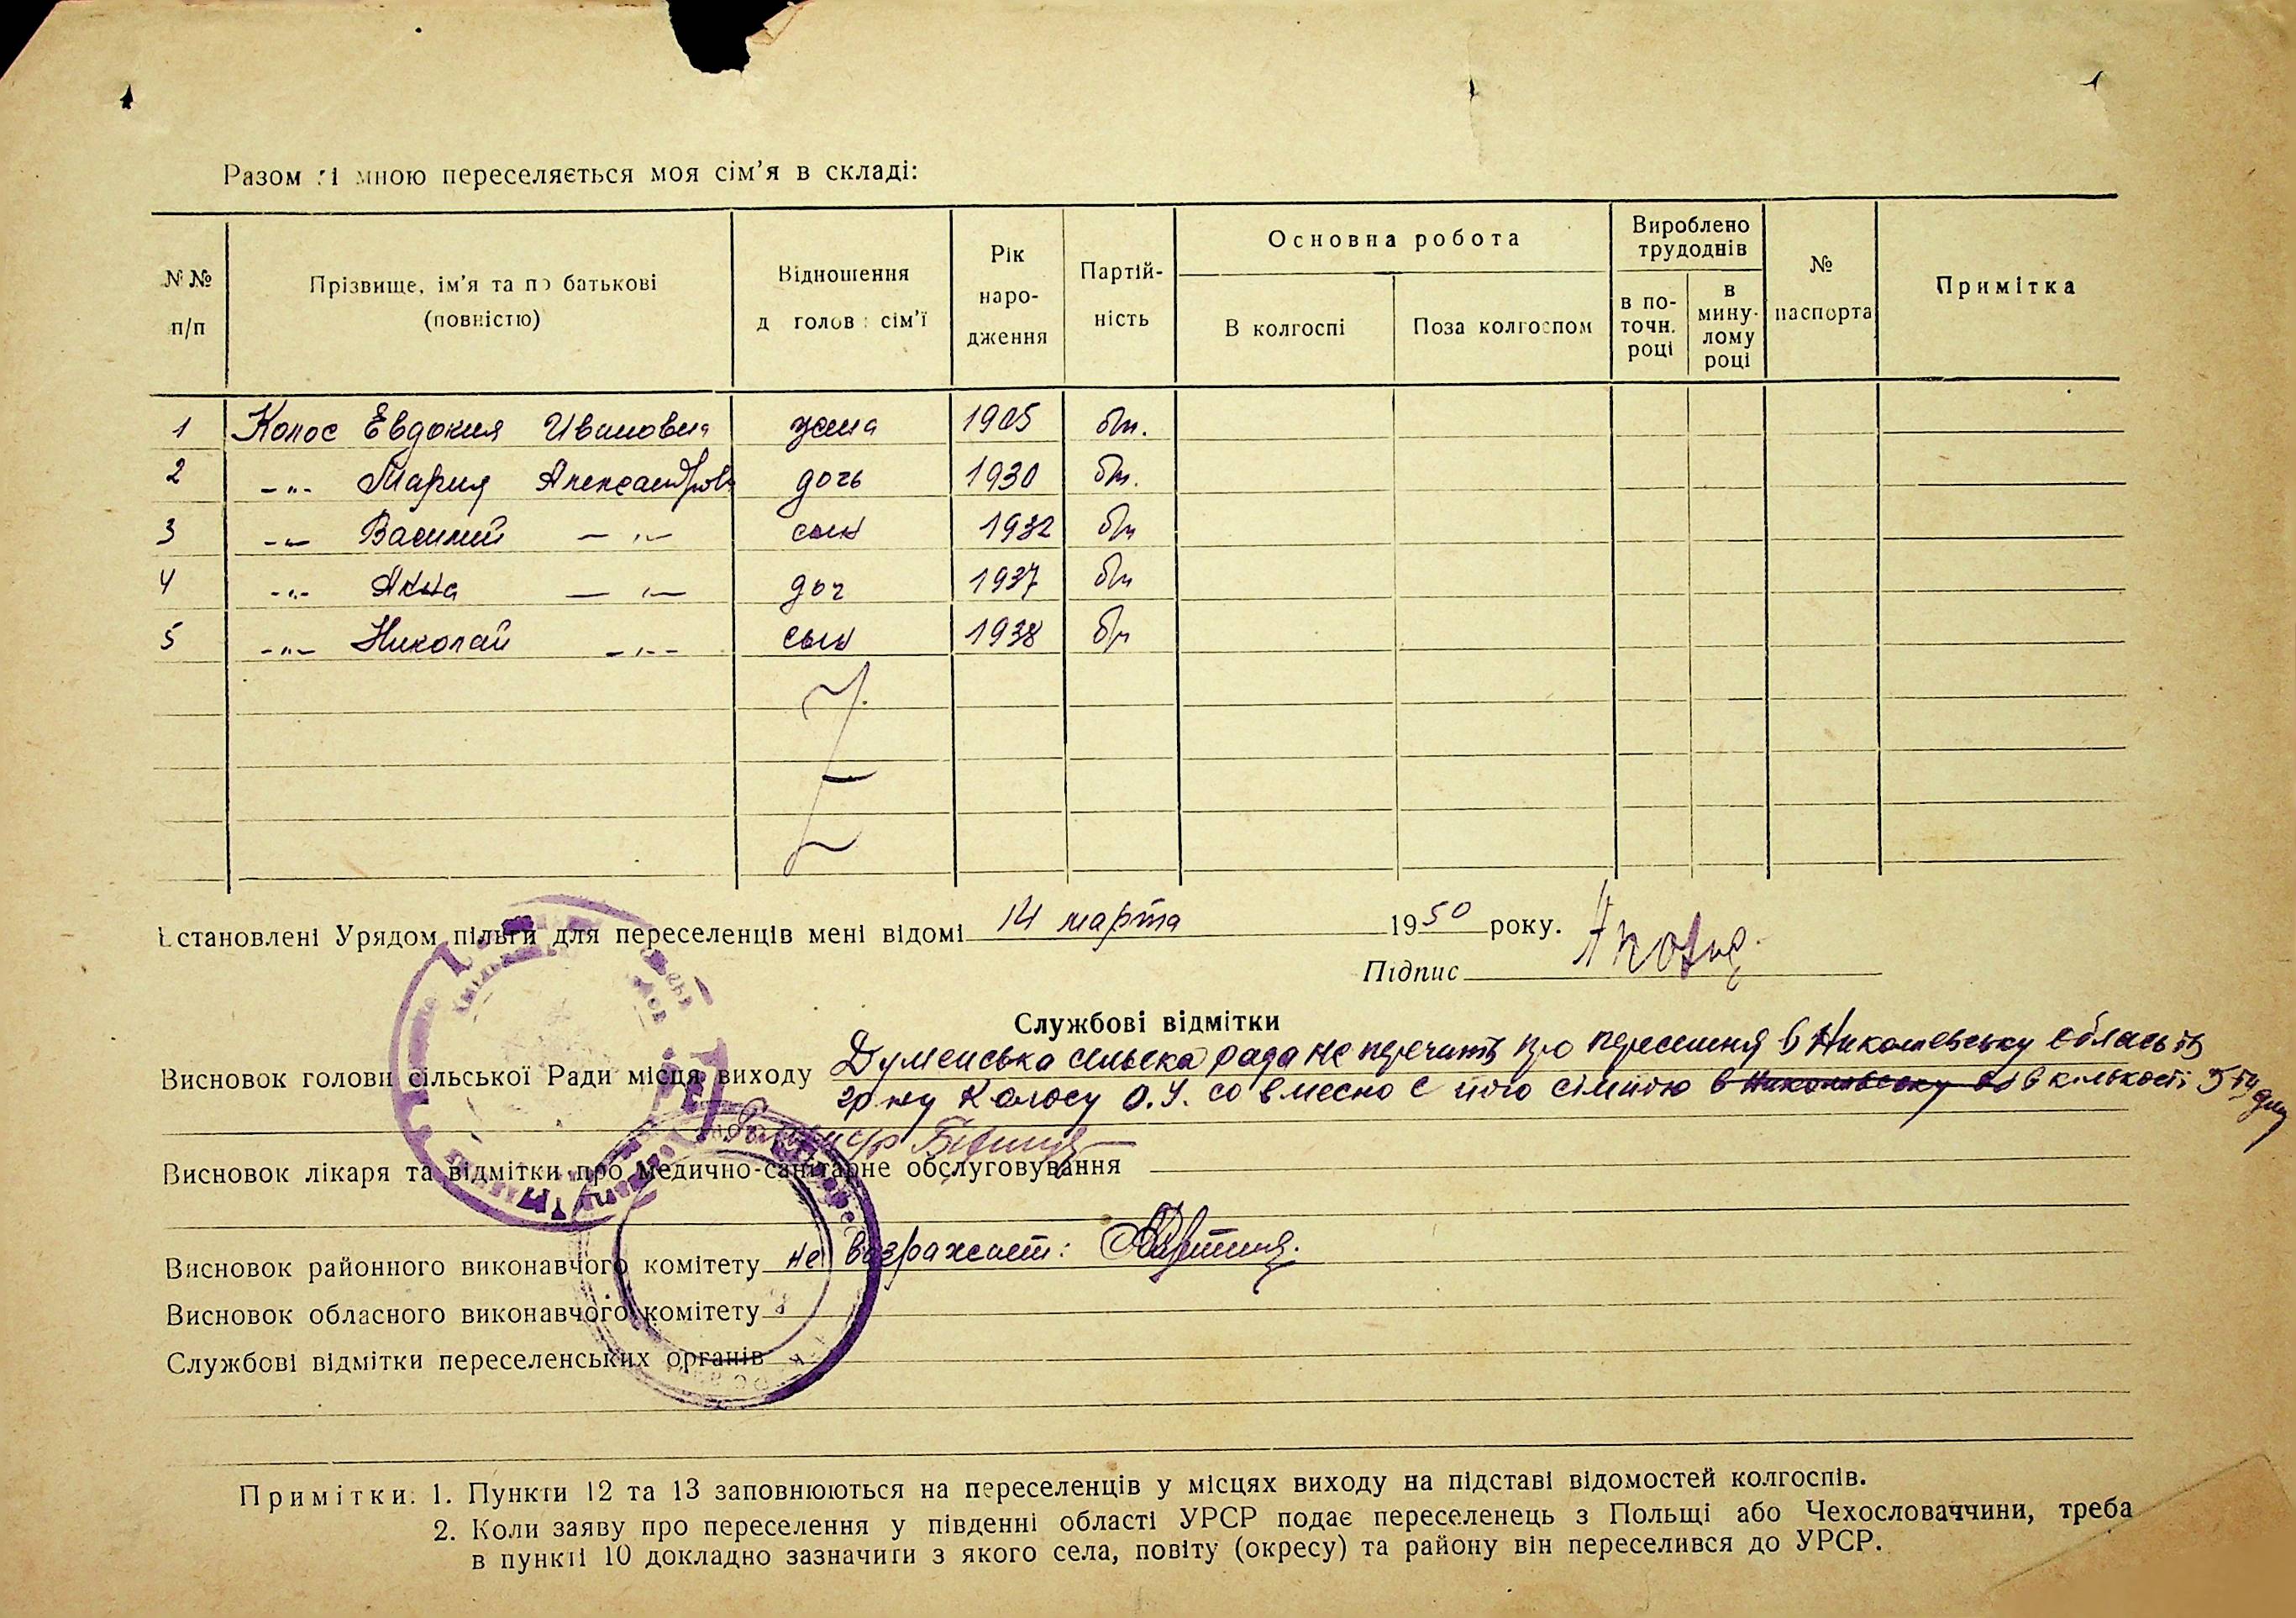 Разом зі мною переселяється моя сім'я в складі:
№№ п/п
Прізвище, ім'я та по батькові (повністю)
Відношення д голов сім'ї
Рік народження
Партійність
Основна робота
В колгоспі
Поза колгоспом
Вироблено трудоднів
в поточн. році
в минулому році
№ паспорта
Примітка
1 Колос Евдокия Ивановна жена 1905 бп.
2 -"- Мария Александров дочь 1930 бп.
3 -"- Василий -"- сын 1932 бп
4 -"- Анна -"- доч 1937 бп
5 -"- Николай -"- сын 1938 бп
Встановлені Урядом пільги для переселенців мені відомі 14 марта 1950 року.
Підпис
Службові відмітки
Висновок голови сільської Ради місця виходу Думенська сильска рада не перечить про переселення в Николаевську область
гр-ну Колосу О.У. совмесно с його сімйою в Николаевську об в количості 5ти душ
Висновок лікаря та відмітки про медично-санітарне обслуговування
Висновок районного виконавчого комітету не возражает:
Висновок обласного виконавчого комітету
Службові відмітки переселенських органів
Примітки. 1. Пункти 12 та 13 заповнюються на переселенців у місцях виходу на підставі відомостей колгоспів.
2. Коли заяву про переселення у південні області УРСР подає переселенець з Польщі або Чехословаччини, треба
в пункті 10 докладно зазначити з якого села, повіту (окресу) та району він переселився до УРСР.